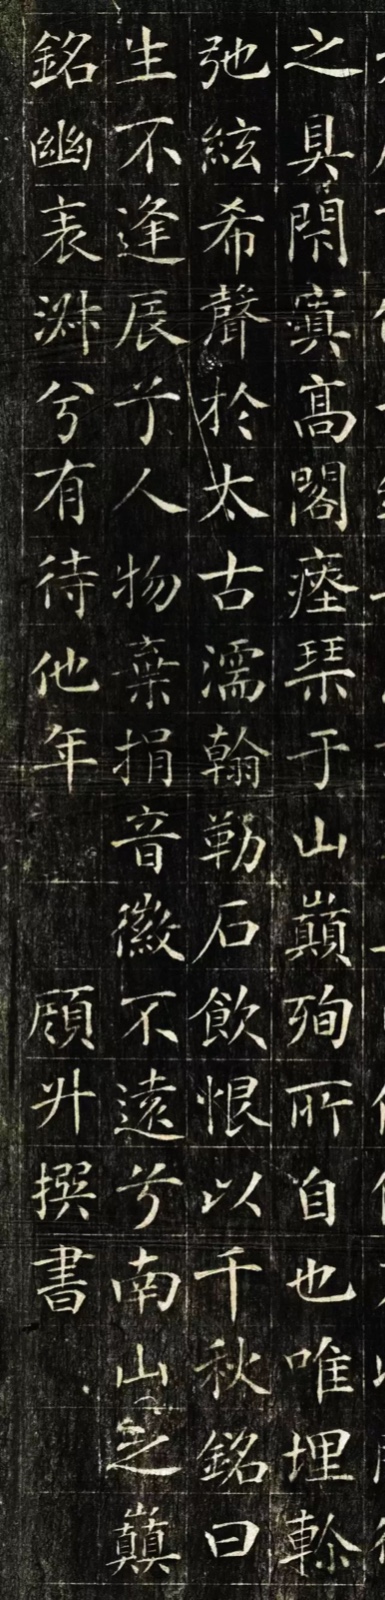 之具閑寘髙閣瘞琹于山巔殉所自也唯埋軫
弛絃希聲於太古濡翰勒石飲恨以千秋銘曰
生不逢辰兮人物棄捐音徽不遠兮南山之巔
銘幽表淵兮有待他年 頋升撰書